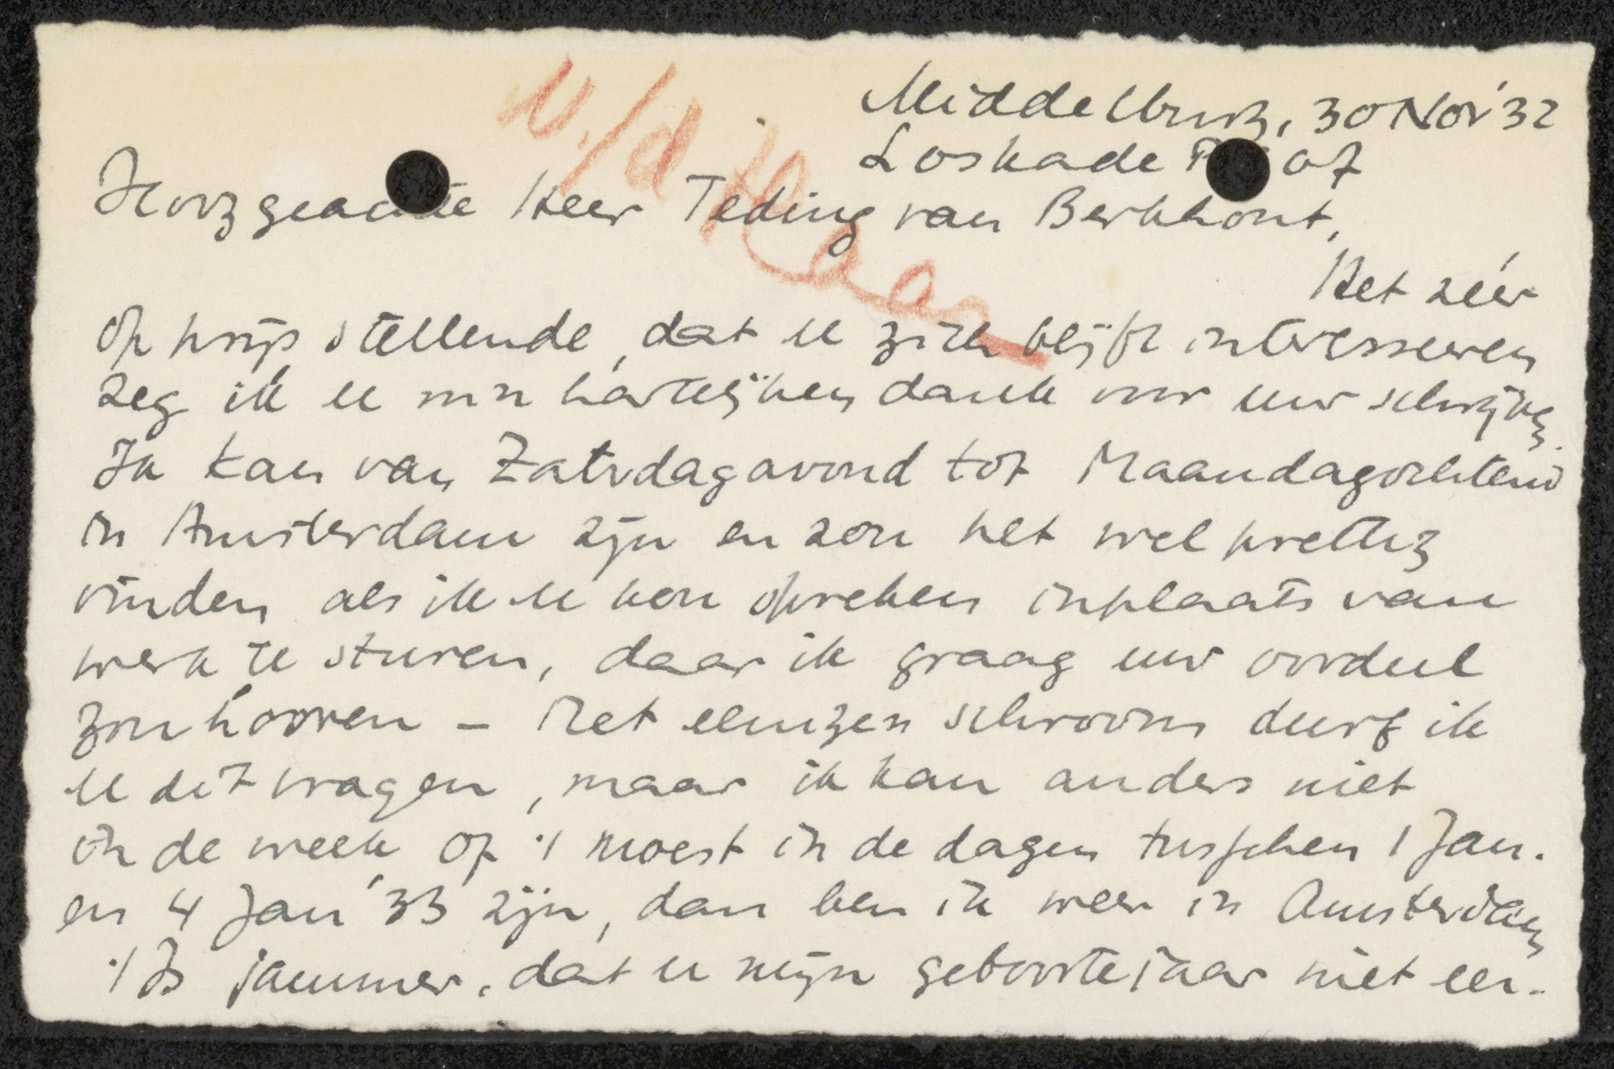 Middelburg, 30 Nov '32
Loskade
v./d Haar
Hooggeachte Heer Teding van Berkhout,
Het zéér
op prijs stellende, dat U zich blijft intresseeren
zeg ik U m'n hartelijken dank voor uw schrijven.
Ik kan van Zaterdagavond tot Maandagochtend
in Amsterdam zijn en zou het wel prettig
vinden als ik U kon spreken inplaats van
werk te sturen, daar ik graag uw oordeel
zou hooren – Met eenigen schroom durf ik
U dit vragen, maar ik kan anders niet
in de week of 't moest in de dagen tusschen 1 Jan.
en 4 Jan '33 zijn, dan ben ik weer in Amsterdam
't Is jammer, dat U mijn geboortejaar niet eer-